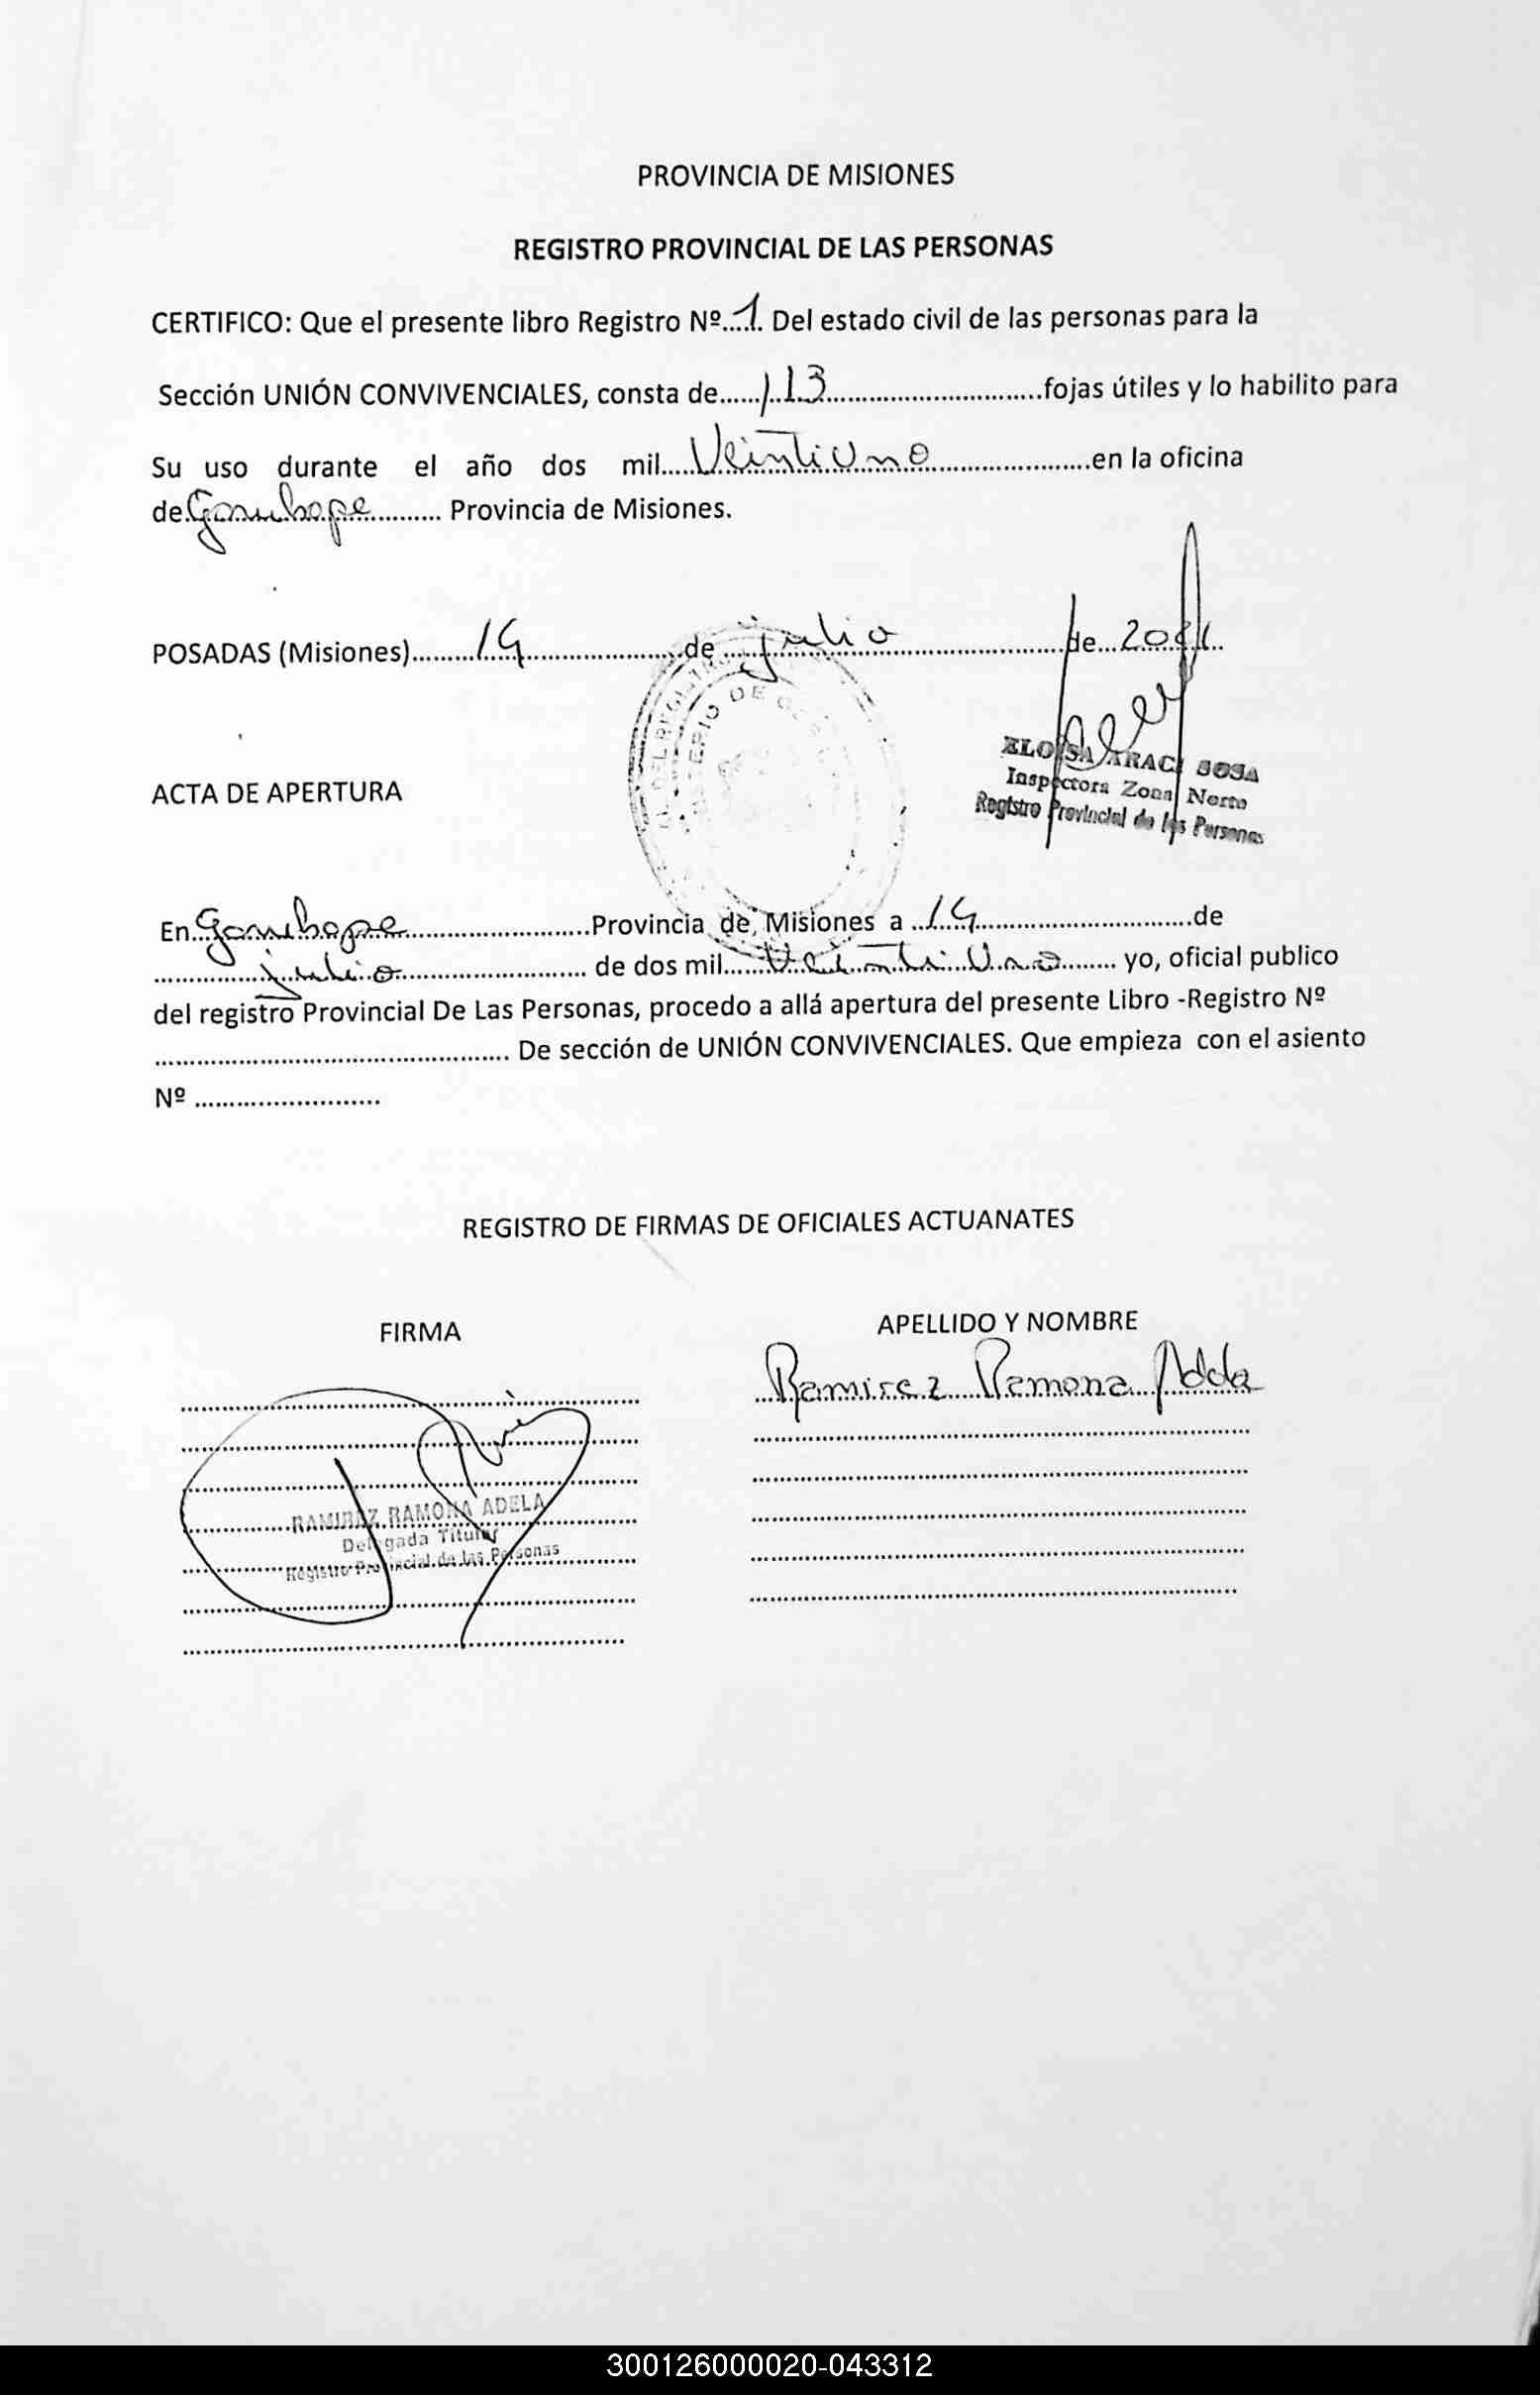 PROVINCIA DE MISIONES
REGISTRO PROVINCIAL DE LAS PERSONAS
CERTIFICO: Que el presente libro Registro Nº....1. Del estado civil de las personas para la
Sección UNIÓN CONVIVENCIALES, consta de......113................................fojas útiles y lo habilito para
Su uso durante el año dos mil.....Veintiuno........................en la oficina
de.Garuhape........... Provincia de Misiones.
POSADAS (Misiones).........14.......................de.....julio.........................de...2021..
ELOISA ARACI SOSA
Inspectora Zona Norte
Registro Provincial de las Personas
ACTA DE APERTURA
En..Garuhape...........................Provincia de Misiones a ..14...............................de
...............julio........................... de dos mil.......Veintiuno........ yo, oficial publico
del registro Provincial De Las Personas, procedo a allá apertura del presente Libro -Registro Nº
.................................................... De sección de UNIÓN CONVIVENCIALES. Que empieza con el asiento
Nº ...........................
REGISTRO DE FIRMAS DE OFICIALES ACTUANATES
FIRMA APELLIDO Y NOMBRE
Ramirez Ramona Adela
RAMIREZ RAMONA ADELA
Delegada Titular
Registro Provincial de las Personas
300126000020-043312